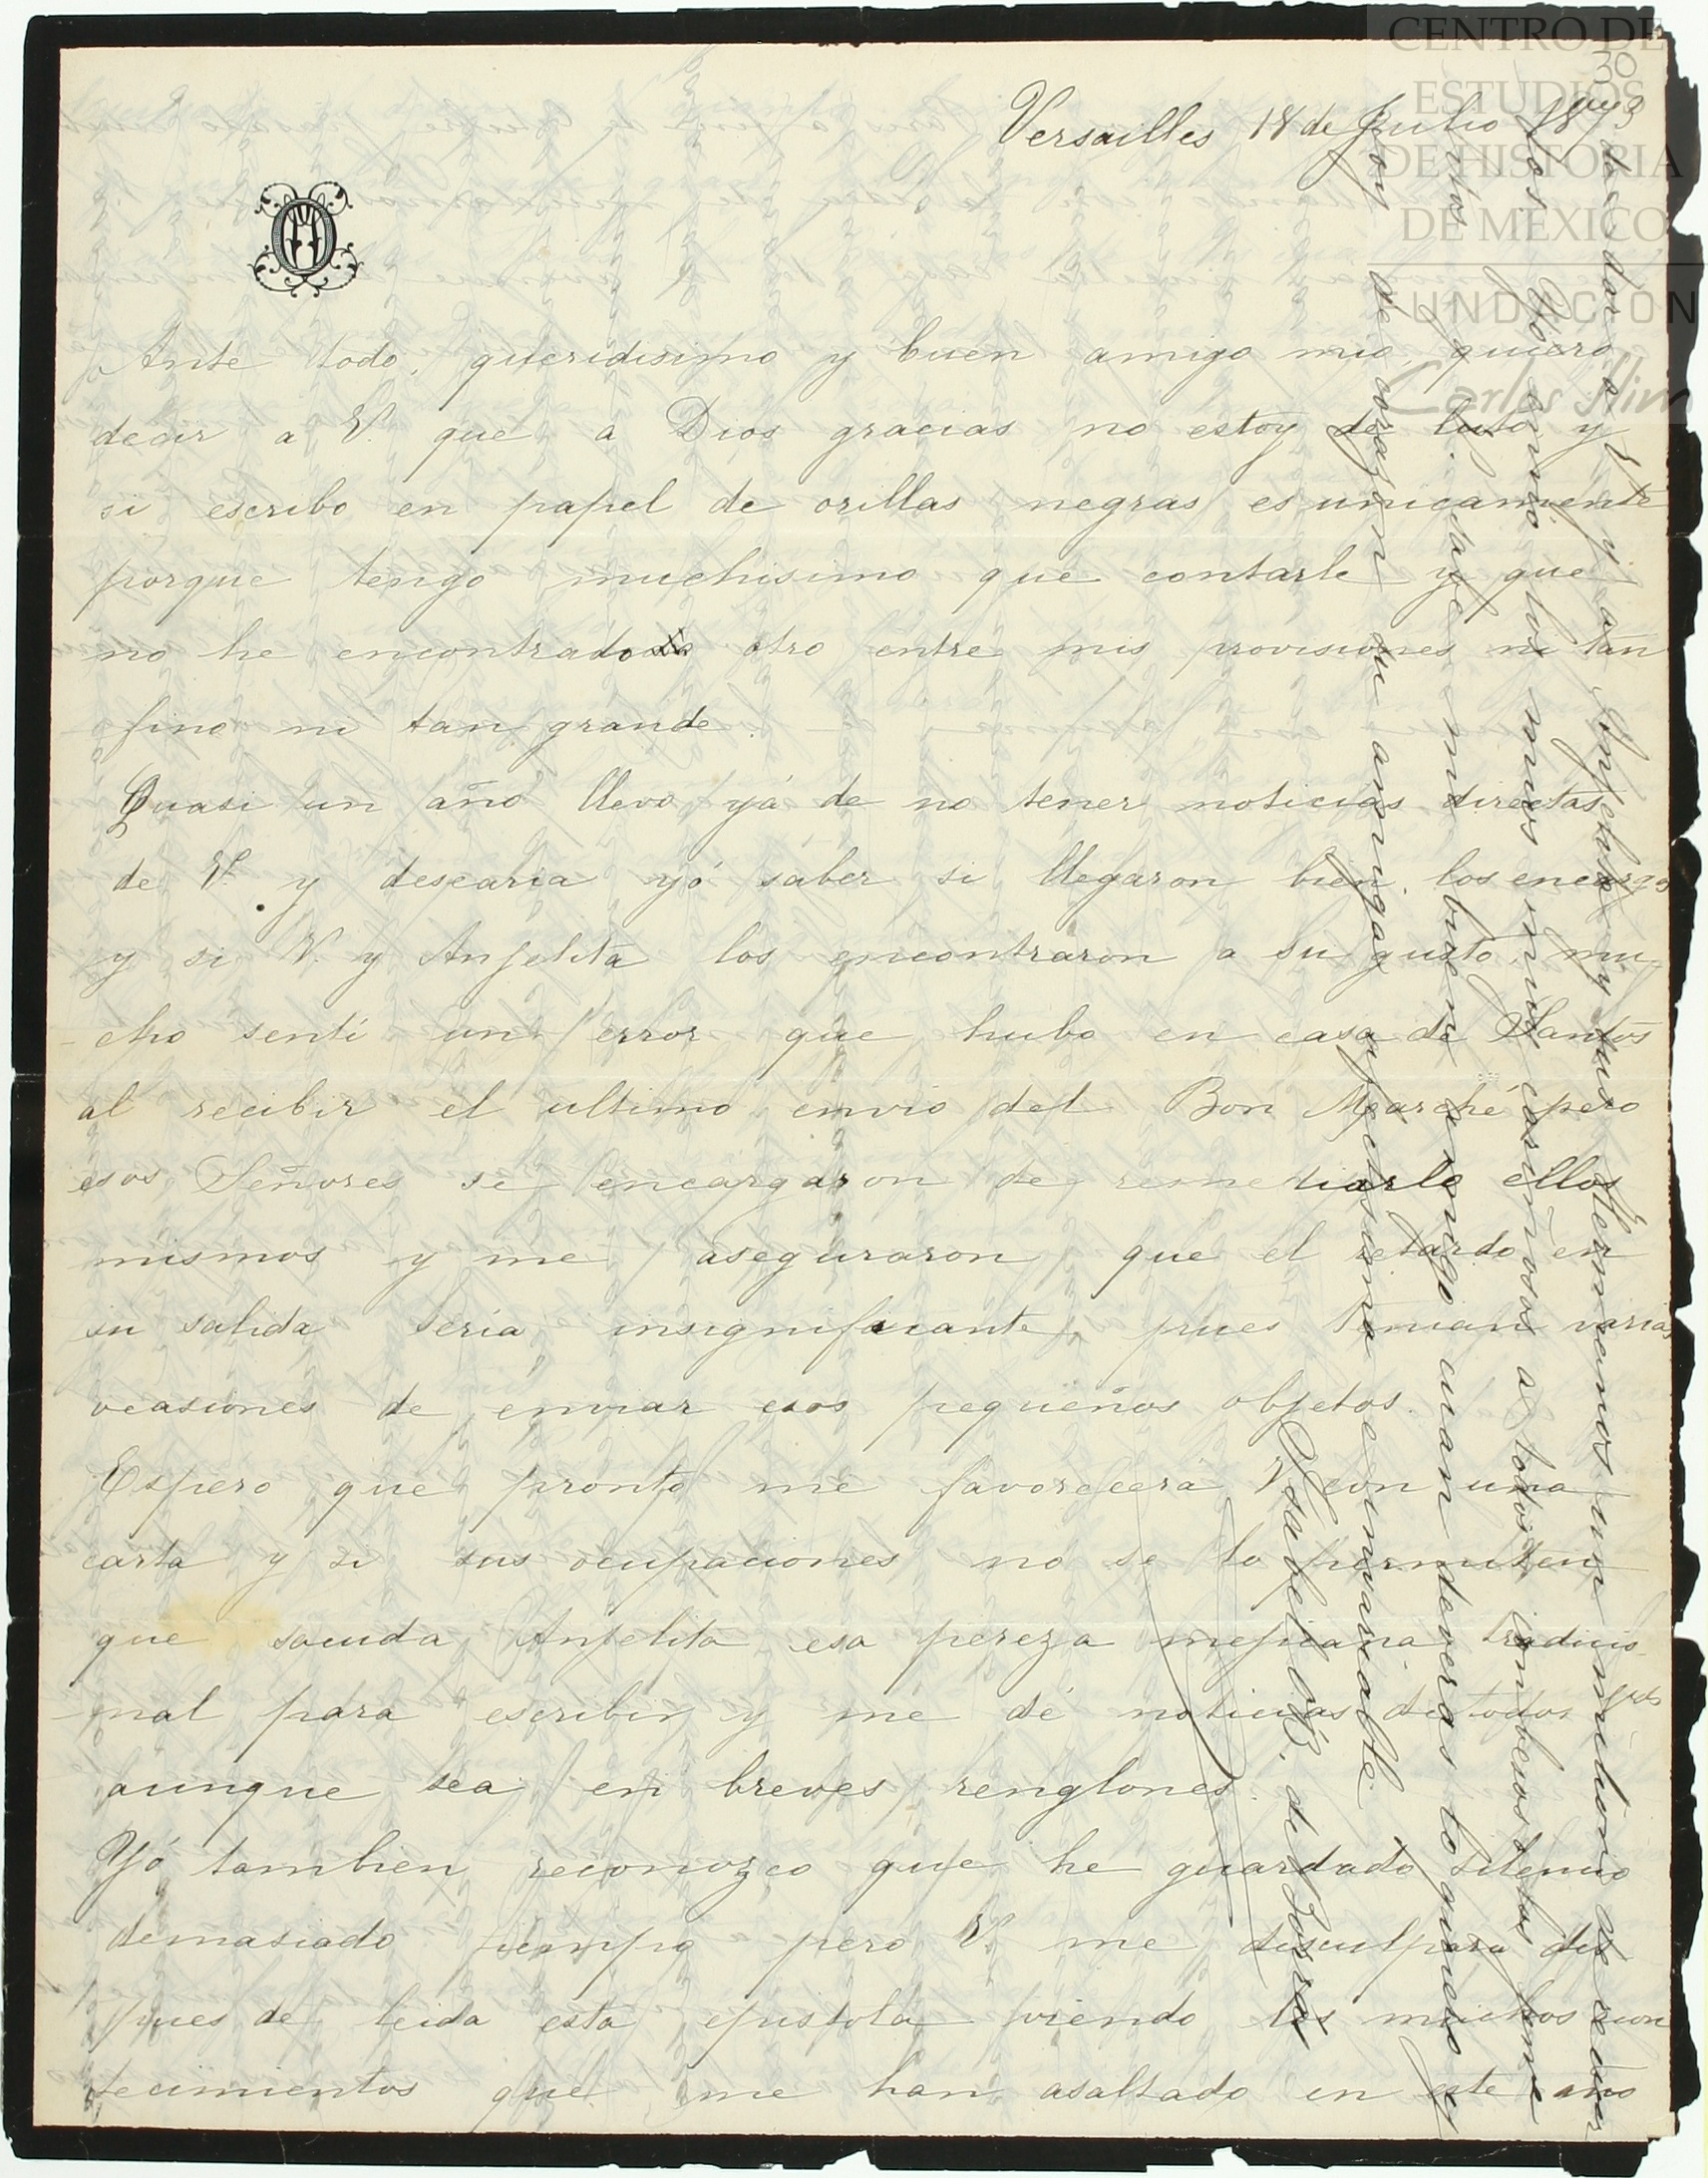 CENTRO DE
ESTUDIOS
DE HISTORIA
DE MEXICO
FUNDACIÓN
Carlos Slim
30
Versailles 18 de Julio 1893
Ante todo, queridisimo y buen amigo mio, quiero
decir a V. que a Dios gracias no estoy de luto y
si escribo en papel de orillas negras es unicamente
porque tengo muchisimo que contarle y que
no he encontrado otro entre mis provisiones ni tan
fino ni tan grande.
Quasi un año llevo yá de no tener noticias directas
de V. y desearia yó saber si llegaron bien los encargos
y si V. y Anjelita los encontraron a su gusto, mu-
cho senti un error que hubo en casa de Santos
al recibir el ultimo envio del Bon Marché pero
esos Señores se encargaron de remediarlo ellos
mismos y me aseguraron que el retardo en
su salida seria insignificante, pues tenian varias
ocasiones de enviar esos pequeños objetos.
Espero que pronto me favorecerá V. con una
carta y si sus ocupaciones no se lo permiten
que sacuda Anjelita esa pereza mejicana tradicio-
nal para escribir y me dé noticias de todos Vds
aunque sea en breves renglones.
Yó tambien reconozco que he guardado silencio
demasiado tiempo pero V. me disculpara des
pues de leida esta epistola viendo los muchos acon
tecimientos que me han asaltado en este año
dar a V. y a Anjelita y sus hermanos un millon de
les envio los mios mil cariños a todos con besos
Vdes. sabe mi buen amigo cuan deveras lo quiero y
soy de corazon su amiga afectisima e invariable.
Ysabel B. de